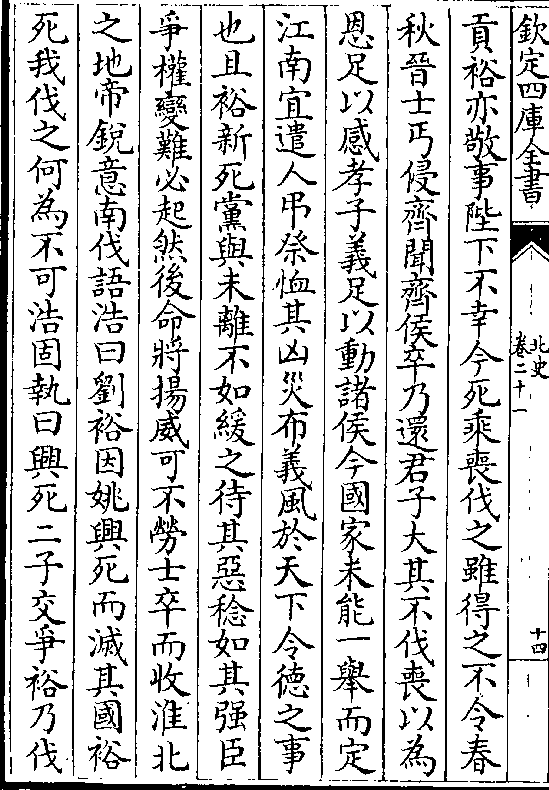 欽定四庫全書
北史
卷二十一
十四
貢裕亦敬事陛下不幸今死乘喪伐之雖得之不令春
秋晉士丐侵齊聞齊侯卒乃還君子大其不伐喪以為
恩足以感孝子義足以動諸侯今國家未能一舉而定
江南宜遣人弔祭恤其凶災布義風於天下令德之事
也且裕新死黨與未離不如緩之待其惡稔如其强臣
爭權變難必起然後命將揚威可不勞士卒而收淮北
之地帝銳意南伐語浩曰劉裕因姚興死而滅其國裕
死我伐之何為不可浩固執曰興死二子交爭裕乃伐